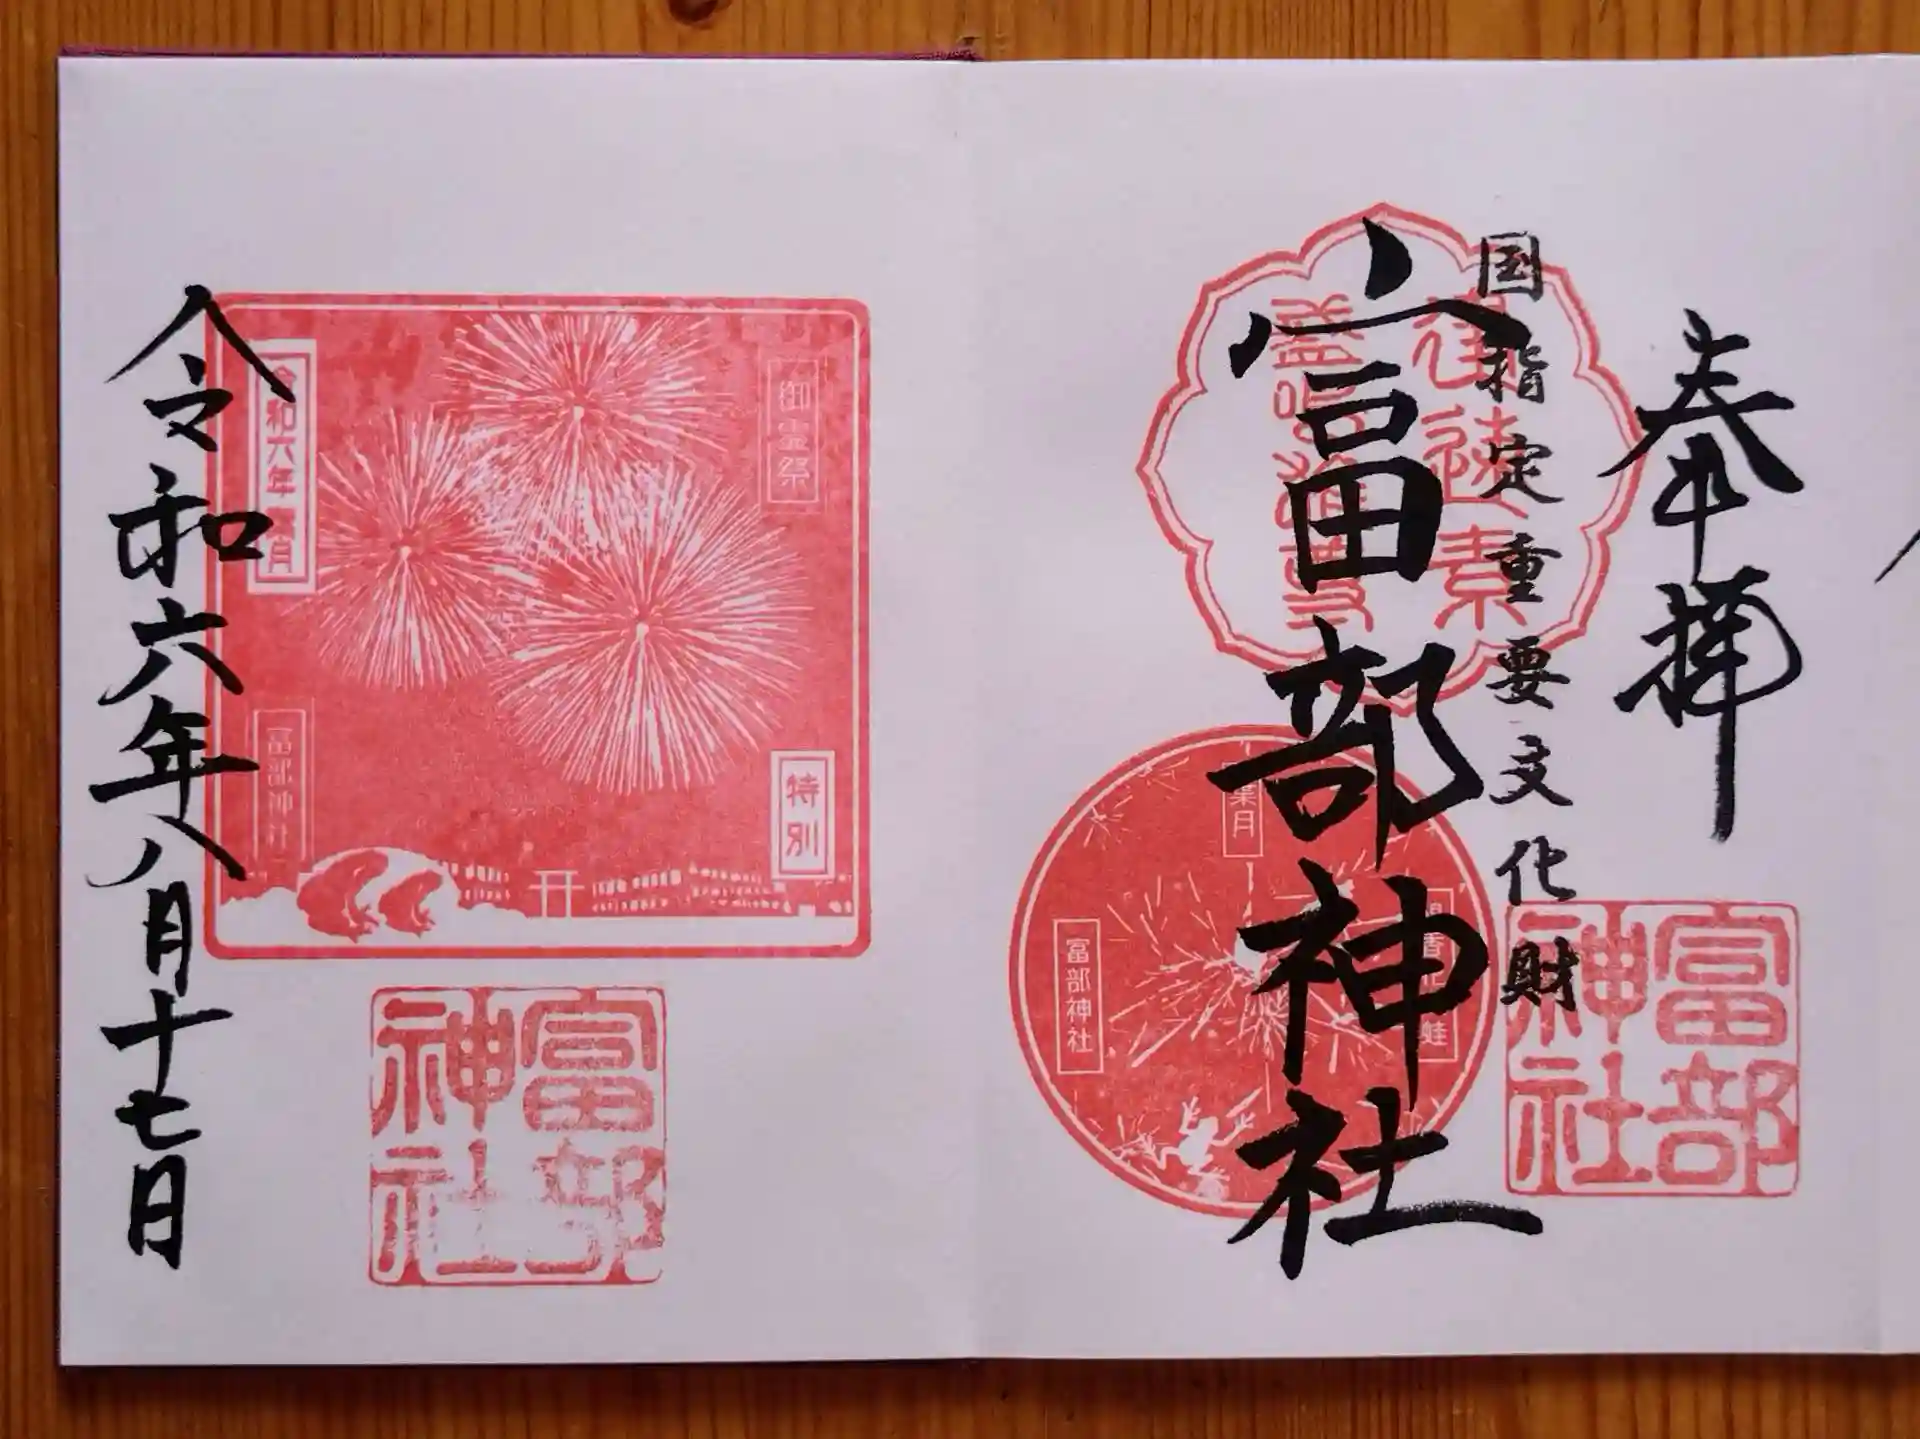 奉拝
国指定重要文化財
富部神社
葉月
富部神社
富部
神社
御霊祭
特別
令和六年葉月
富部神社
令和六年八月十七日
富部
神社